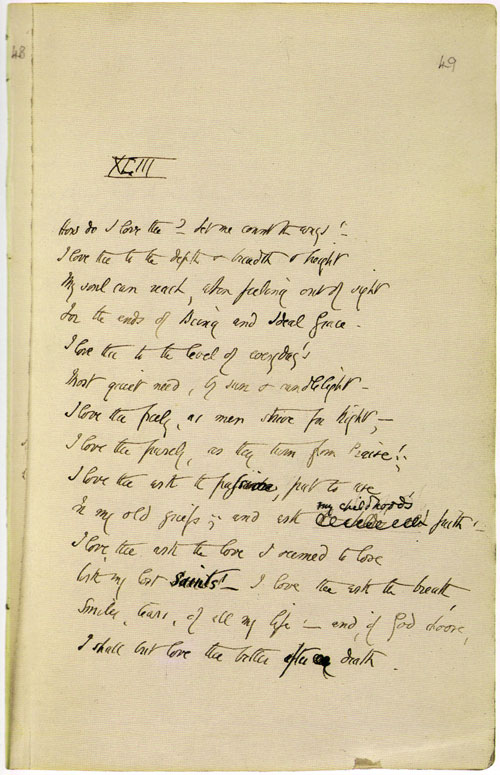 48
49
XLIII
How do I love thee? Let me count the ways!—
I love thee to the depth & breadth & height
My soul can reach, when feeling out of sight
For the ends of Being and Ideal Grace.
I love thee to the level of everyday's
Most quiet need, by sun & candlelight—
I love thee freely, as men strive for Right,—
I love thee purely, as they turn from Praise!;
I love thee with the passion, put to use
my childhood's
In my old griefs,; and with faith:
I love thee with the love I seemed to lose
With my lost Saints!— I love thee with the breath,
Smiles, tears, of all my life!— and, if God choose,
I shall but love thee better after death.